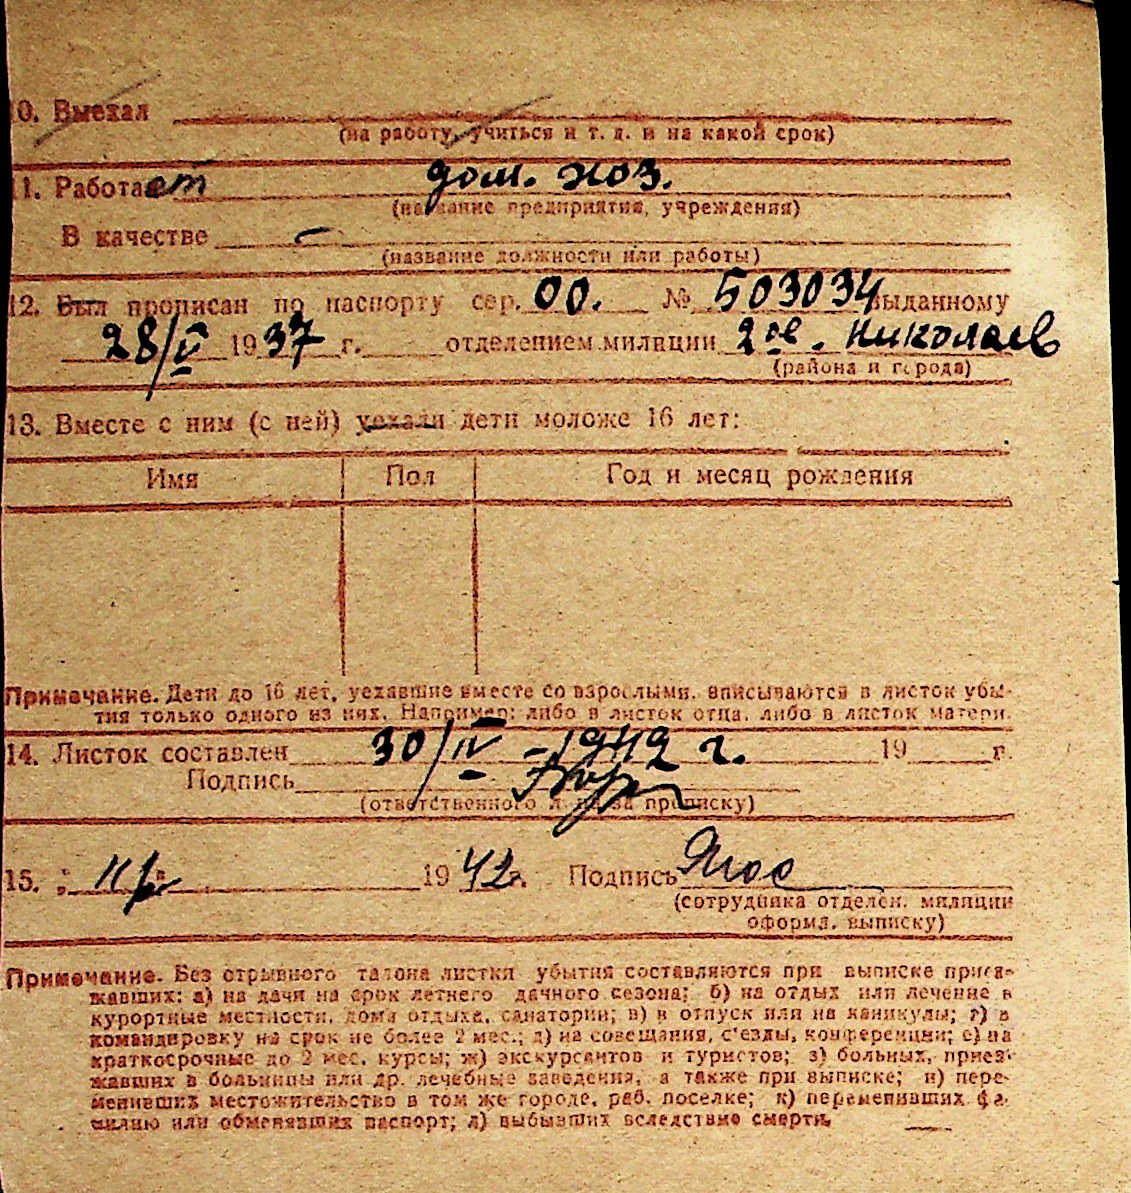 10. Выехал
(на работу, учиться и т. д. и на какой срок)
11. Работает дом. хоз.
(название предприятия, учреждения)
В качестве —
(название должности или работы)
12. Был прописан по паспорту сер. 00. № 503034 выданному
28/V 1937 г. отделением милиции 2ое. Николаев
(района и города)
13. Вместе с ним (с ней) уехали дети моложе 16 лет:
Имя Пол Год и месяц рождения
Примечание. Дети до 16 лет, уехавшие вместе со взрослыми, вписываются в листок убы-
тия только одного из них. Например: либо в листок отца, либо в листок матери.
14. Листок составлен 30/IV - 1942 г. 19 г.
Подпись
(ответственного лица за прописку)
15. 1942г. Подпись
(сотрудника отделен. милиции
оформл. выписку)
Примечание. Без отрывного талона листки убытия составляются при выписке приез-
жавших: а) на дачи на срок летнего дачного сезона; б) на отдых или лечение в
курортные местности, дома отдыха, санатории; в) в отпуск или на каникулы; г) в
командировку на срок не более 2 мес.; д) на совещания, с'езды, конференции; е) на
краткосрочные до 2 мес. курсы; ж) экскурсантов и туристов; з) больных, приез-
жавших в больницы или др. лечебные заведения, а также при выписке; и) пере-
менивших местожительство в том же городе, раб. поселке; к) переменивших фа-
милию или обменявших паспорт; л) выбывших вследствие смерти.